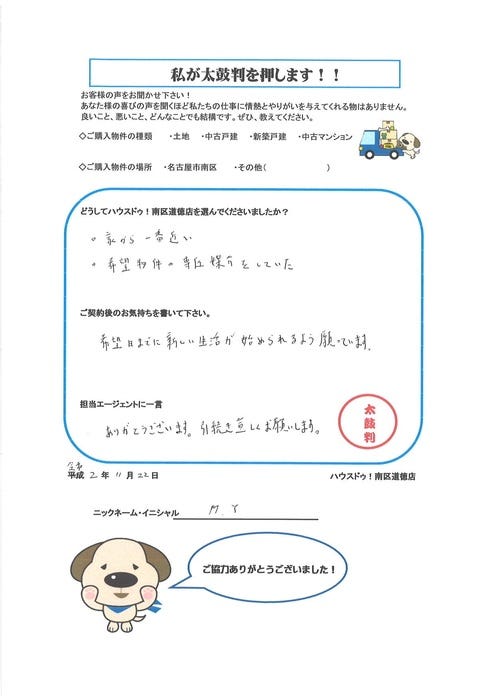 私が太鼓判を押します！！
お客様の声をお聞かせ下さい！
あなた様の喜びの声を聞くほど私たちの仕事に情熱とやりがいを与えてくれる物はありません。
良いこと、悪いこと、どんなことでも結構です。ぜひ、教えてください。
◇ご購入物件の種類　・土地　・中古戸建　・新築戸建　・中古マンション
◇ご購入物件の場所　・名古屋市南区　・その他（　　　　　　）
どうしてハウスドゥ！南区道徳店を選んでくださいましたか？
。家から一番近い
。希望物件の専任媒介をしていた
ご契約後のお気持ちを書いて下さい。
希望日までに新しい生活が始められるよう願っています。
担当エージェントに一言
ありがとうございます。引続き宜しくお願いします。
太鼓判
令和
平成 2 年 11 月 22 日　ハウスドゥ！南区道徳店
ニックネーム・イニシャル　M.Y
ご協力ありがとうございました！